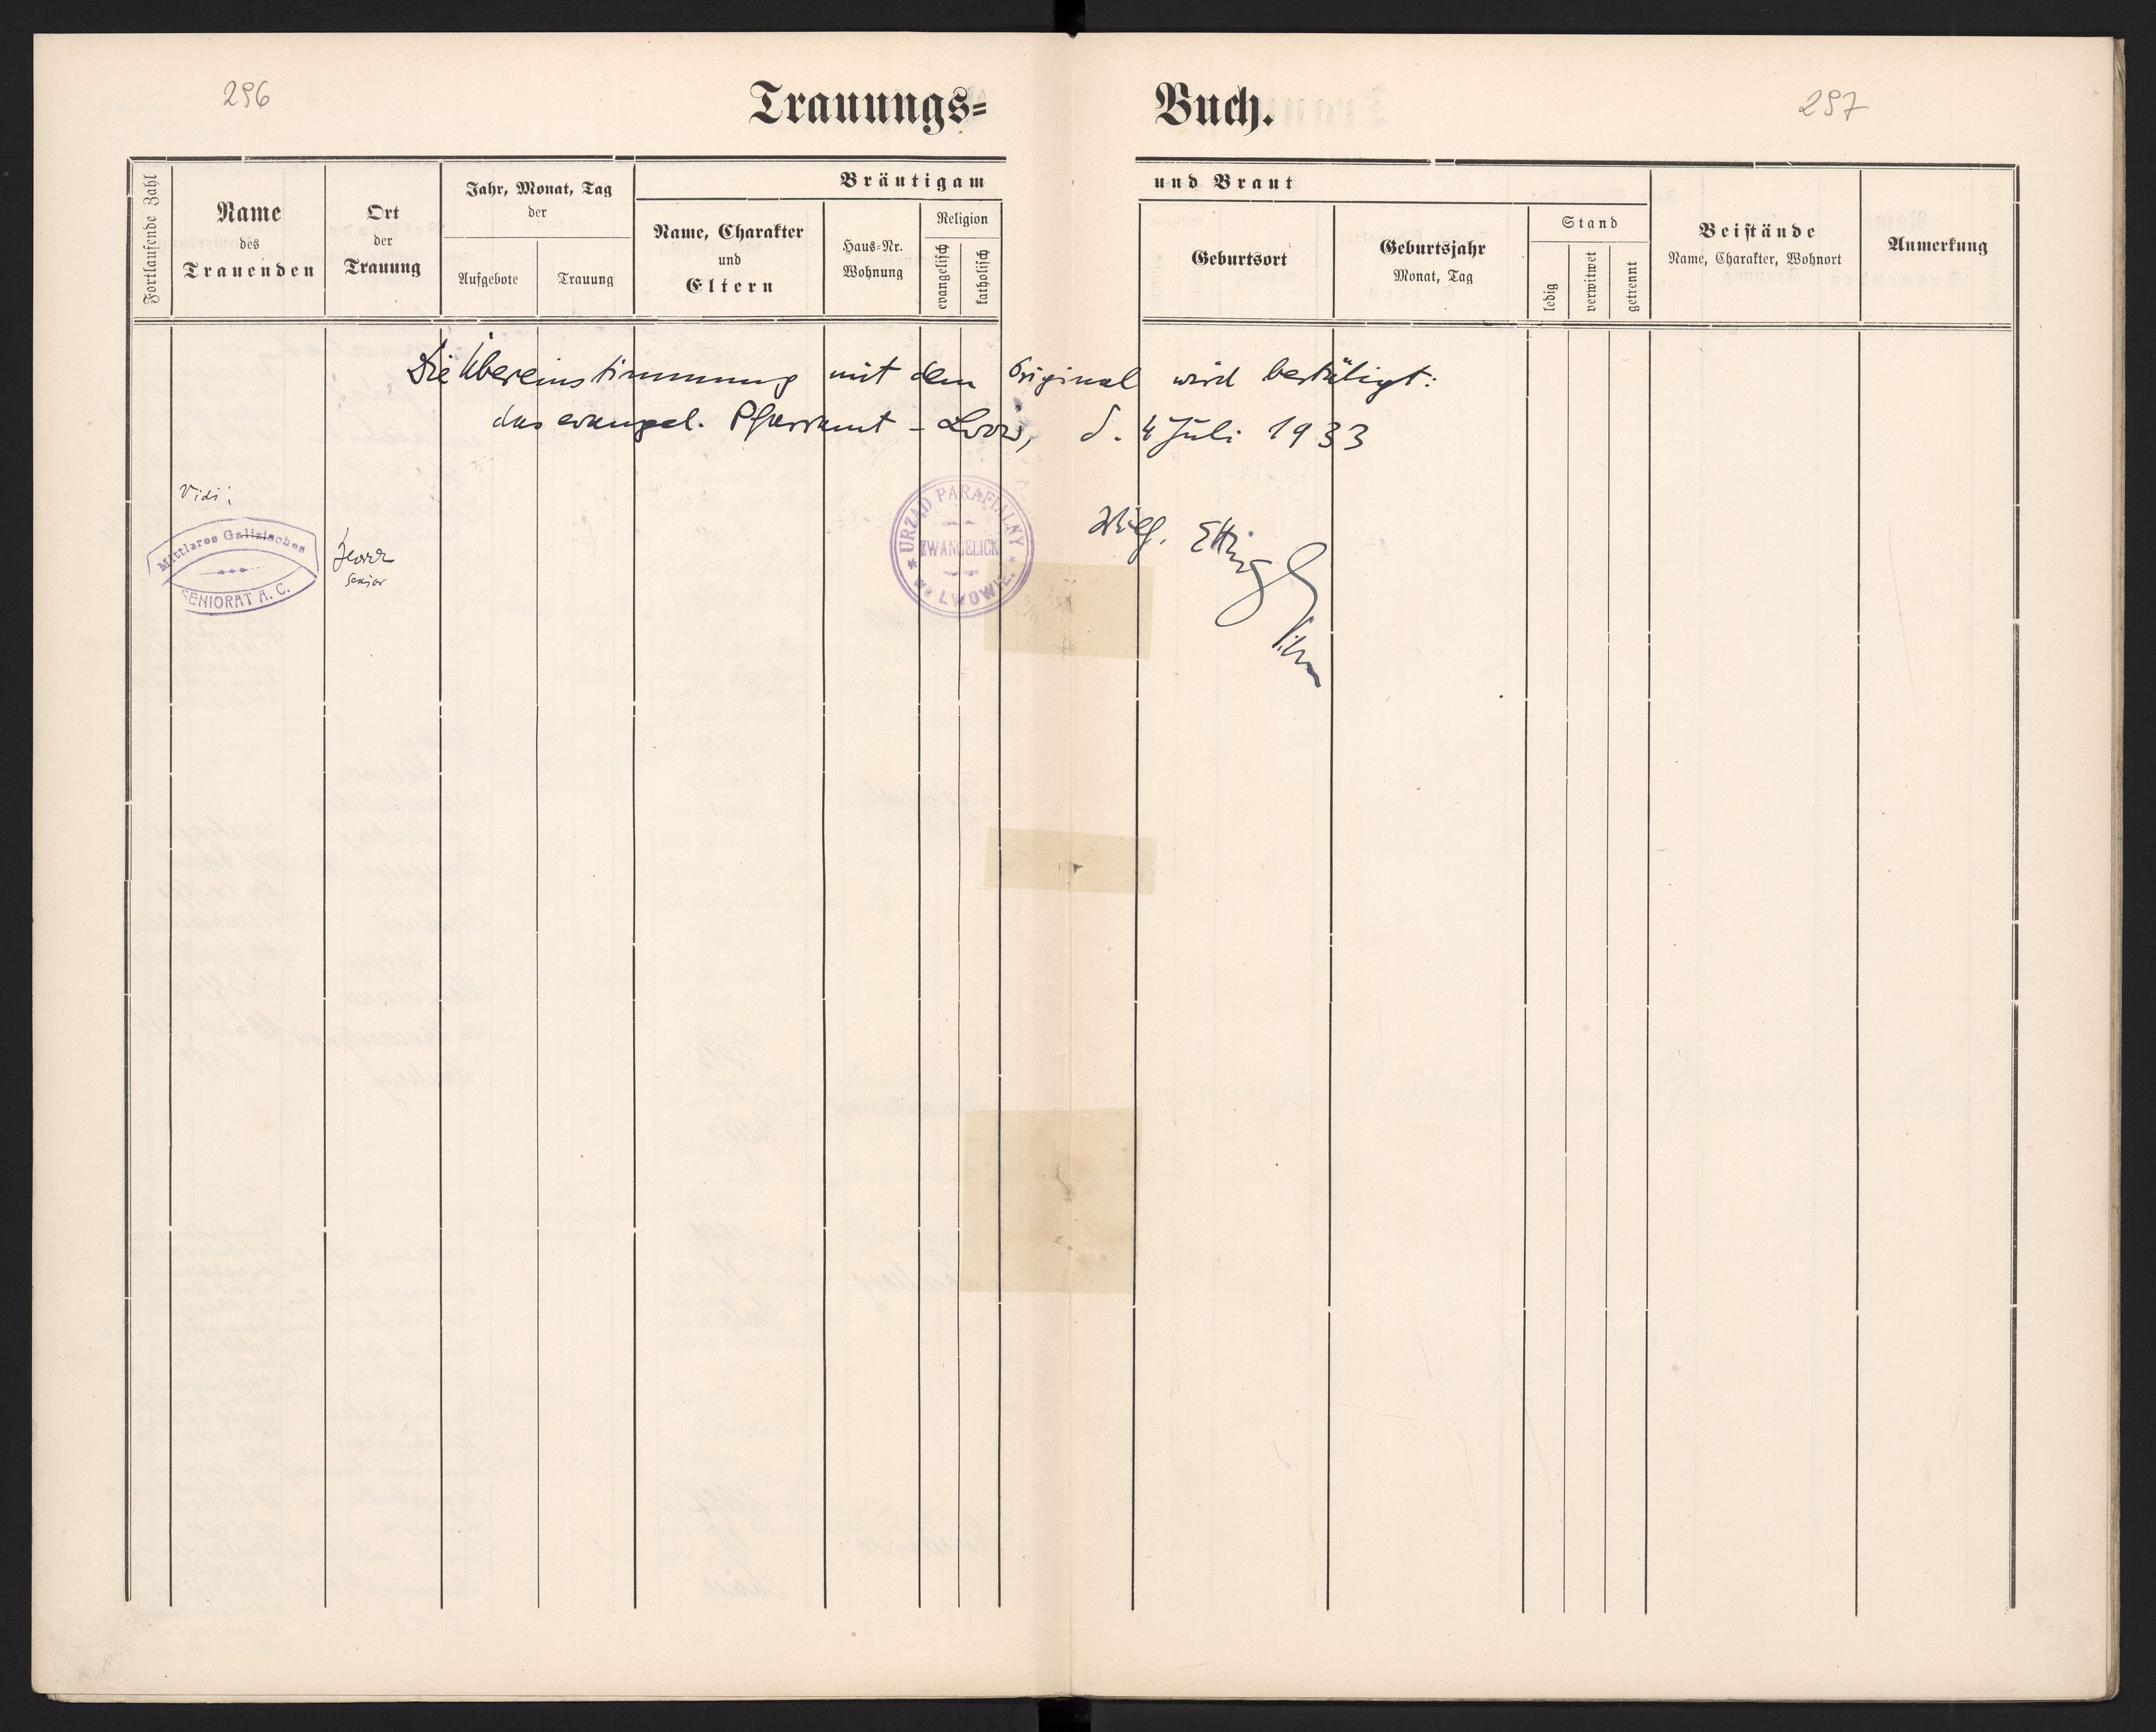 296
Trauungs=
Buch.
297
Fortlaufende Zahl
Name
des
Trauenden
Ort
der
Trauung
Jahr, Monat, Tag
der
Aufgebote
Trauung
Bräutigam
Name, Charakter
und
Eltern
Haus=Nr.
Wohnung
Religion
evangelisch
katholisch
und Braut
Geburtsort
Geburtsjahr
Monat, Tag
Stand
ledig
verwitwet
getrennt
Beistände
Name, Charakter, Wohnort
Anmerkung
Die Übereinstimmung mit dem Original wird bestätigt:
das evangel. Pfarramt - Lwów, d. 4 Juli 1933
Vidi:
Mittleres Galizisches
SENIORAT A. C.
Senior
URZĄD PARAFIALNY
EWANGELICKI
WE LWOWIE.
Ettinger